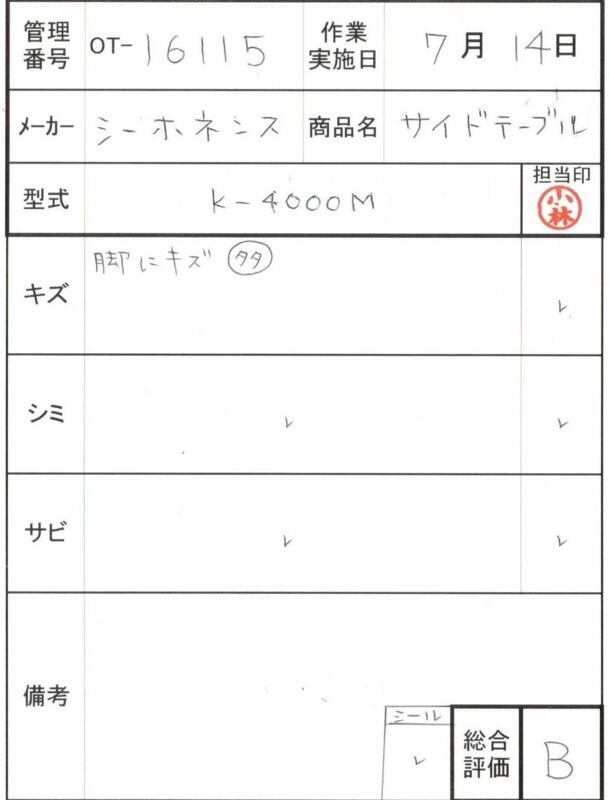 管理番号 OT-16115 作業実施日 7月14日
メーカー シーホネンス 商品名 サイドテーブル
型式 K-4000M 担当印 小林
キズ 脚にキズ 多 ✓
シミ ✓ ✓
サビ ✓ ✓
備考
シール ✓ 総合評価 B